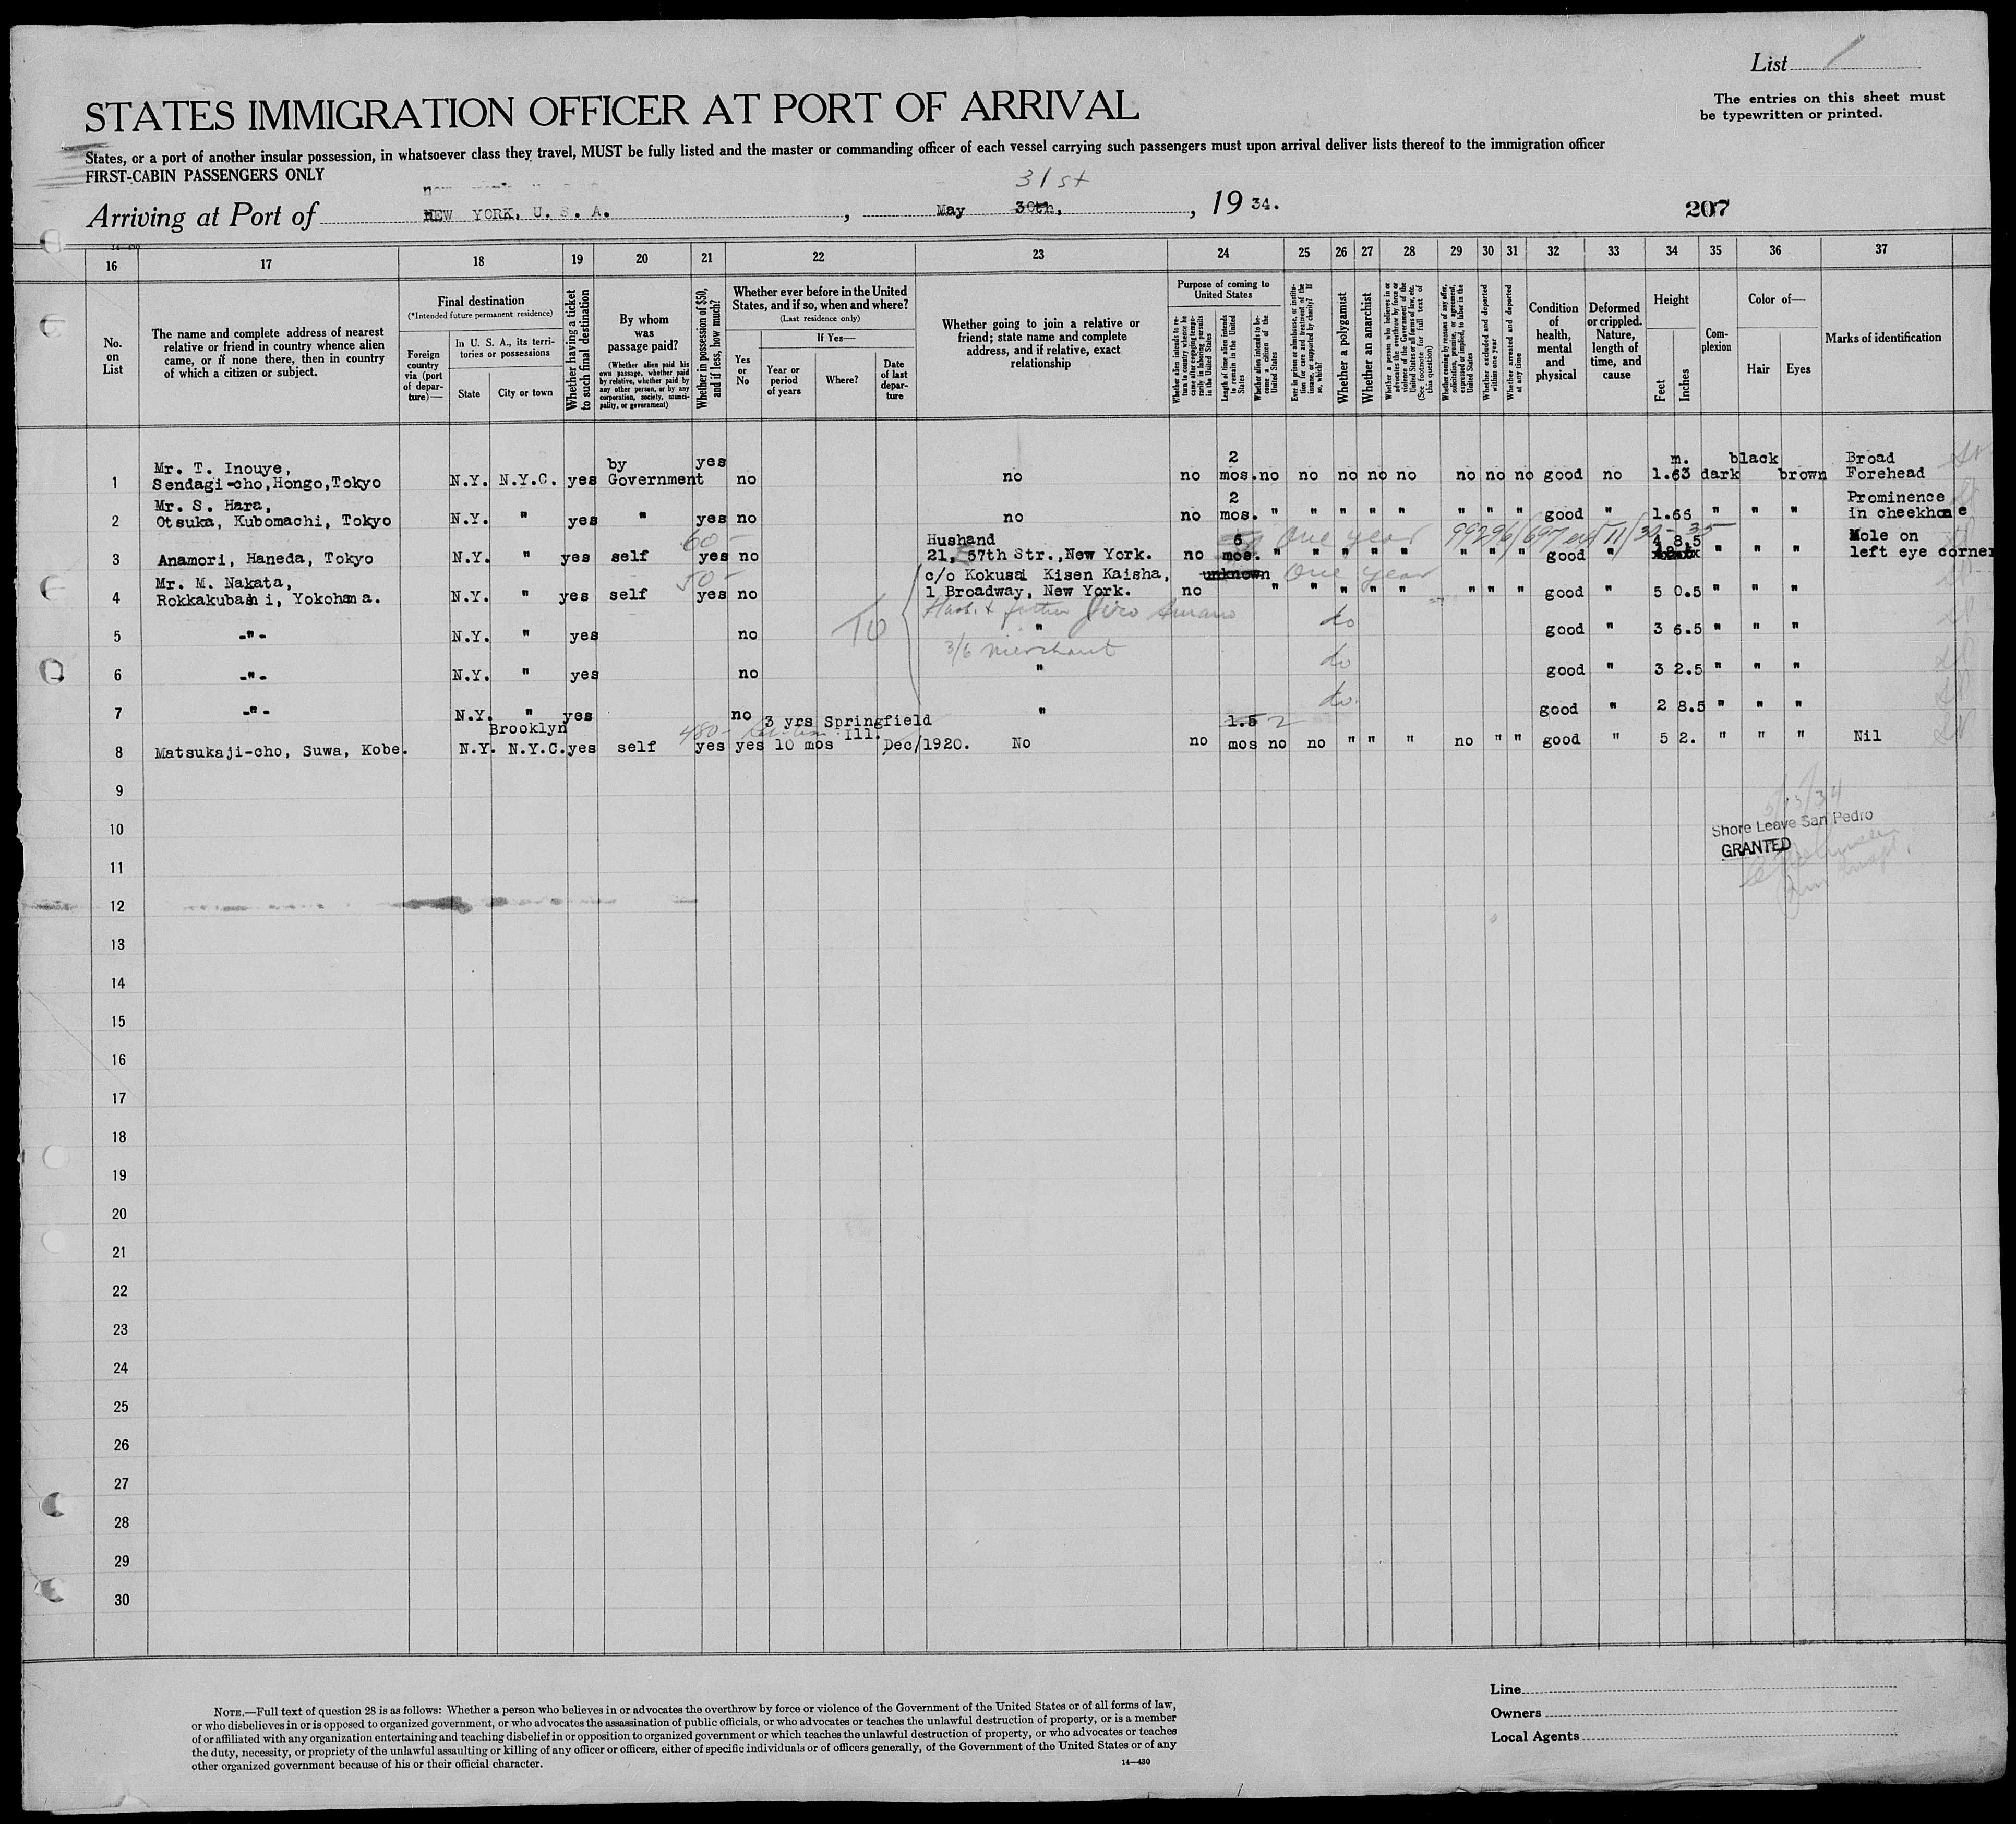 List /
STATES IMMIGRATION OFFICER AT PORT OF ARRIVAL
The entries on this sheet must
be typewritten or printed.
States, or a port of another insular possession, in whatsoever class they travel, MUST be fully listed and the master or commanding officer of each vessel carrying such passengers must upon arrival deliver lists thereof to the immigration officer
FIRST-CABIN PASSENGERS ONLY
31st
Arriving at Port of NEW YORK, U. S. A. , May 30th, , 19 34.
207
16 17 18 19 20 21 22 23 24 25 26 27 28 29 30 31 32 33 34 35 36 37
No.
on
List
The name and complete address of nearest
relative or friend in country whence alien
came, or if none there, then in country
of which a citizen or subject.
Final destination
(*Intended future permanent residence)
Foreign
country
via (port
of depar-
ture)—
In U. S. A., its terri-
tories or possessions
State
City or town
Whether having a ticket
to such final destination
By whom
was
passage paid?
(Whether alien paid his
own passage, whether paid
by relative, whether paid by
any other person, or by any
corporation, society, munici-
pality, or government)
Whether in possession of $50,
and if less, how much?
Whether ever before in the United
States, and if so, when and where?
(Last residence only)
Yes
or
No
If Yes—
Year or
period
of years
Where?
Date
of last
depar-
ture
Whether going to join a relative or
friend; state name and complete
address, and if relative, exact
relationship
Purpose of coming to
United States
Whether alien intends to re-
turn to country whence he
came after engaging tempo-
rarily in laboring pursuits
in the United States
Length of time alien intends
to remain in the United
States
Whether alien intends to be-
come a citizen of the
United States
Ever in prison or almshouse, or institu-
tion for care and treatment of the
insane, or supported by charity? If
so, which?
Whether a polygamist
Whether an anarchist
Whether a person who believes in or
advocates the overthrow by force or
violence of the Government of the
United States or all forms of law, etc.
(See footnote for full text of
this question)
Whether coming by reasons of any offer,
solicitation, promise, or agreement,
expressed or implied, to labor in the
United States
Whether excluded and deported
within one year
Whether arrested and deported
at any time
Condition
of
health,
mental
and
physical
Deformed
or crippled.
Nature,
length of
time, and
cause
Height
Feet
Inches
Com-
plexion
Color of—
Hair
Eyes
Marks of identification
Mr. T. Inouye, by yes 2 m. black Broad
1 Sendagi-cho, Hongo, Tokyo N.Y. N.Y.C. yes Government no no no mos. no no no no no no no no good no 1.63 dark brown Forehead
Mr. S. Hara, 2 Prominence
2 Otsuka, Kubomachi, Tokyo N.Y. " yes " yes no no no mos. " " " " " " " " good " 1.66 " " " in cheekbone
60- Husband 6 One year 99296/697 11/30-35 4 8.5 Mole on
3 Anamori, Haneda, Tokyo N.Y. " yes self yes no 21, 57th Str., New York. no mos. " " " " " " " " good " " " " left eye corner
Mr. M. Nakata, 50- c/o Kokusai Kisen Kaisha, unknown One year
4 Rokkakubashi, Yokohama. N.Y. " yes self yes no 1 Broadway, New York. no " " " " " " " " good " 5 0.5 " " "
To Husb. & father Jiro Amano
5 -"- N.Y. " yes no " do good " 3 6.5 " " "
3/6 merchant
6 -"- N.Y. " yes no " do good " 3 2.5 " " "
7 -"- N.Y. " yes no " do. good " 2 8.5 " " "
Brooklyn 480- 3 yrs Springfield Ill. 1.5 2
8 Matsukaji-cho, Suwa, Kobe. N.Y. N.Y.C. yes self yes yes 10 mos Dec/1920. No no mos no no " " " no " " good " 5 2. " " " Nil
9
5/15/34
10
Shore Leave San Pedro
GRANTED
11
12
13
14
15
16
17
18
19
20
21
22
23
24
25
26
27
28
29
30
NOTE.—Full text of question 28 is as follows: Whether a person who believes in or advocates the overthrow by force or violence of the Government of the United States or of all forms of law,
or who disbelieves in or is opposed to organized government, or who advocates the assassination of public officials, or who advocates or teaches the unlawful destruction of property, or is a member
of or affiliated with any organization entertaining and teaching disbelief in or opposition to organized government or which teaches the unlawful destruction of property, or who advocates or teaches
the duty, necessity, or propriety of the unlawful assaulting or killing of any officer or officers, either of specific individuals or of officers generally, of the Government of the United States or of any
other organized government because of his or their official character.
14—430
Line
Owners
Local Agents